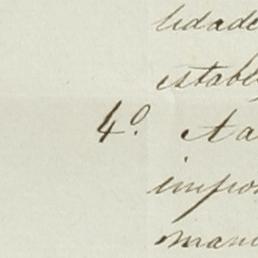 lidade
estable
4º. A a
impos
man